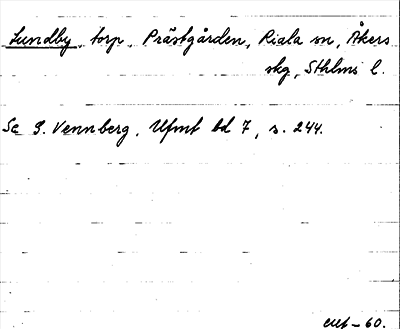 Lundby, torp, Prästgården, Riala sn, Åkers
skg, Sthlms l.
Se G. Vennberg, Ufmt bd 7, s. 244.
-60.